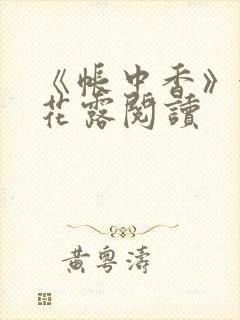 《帳中香》
花露閱讀
黃粵濤